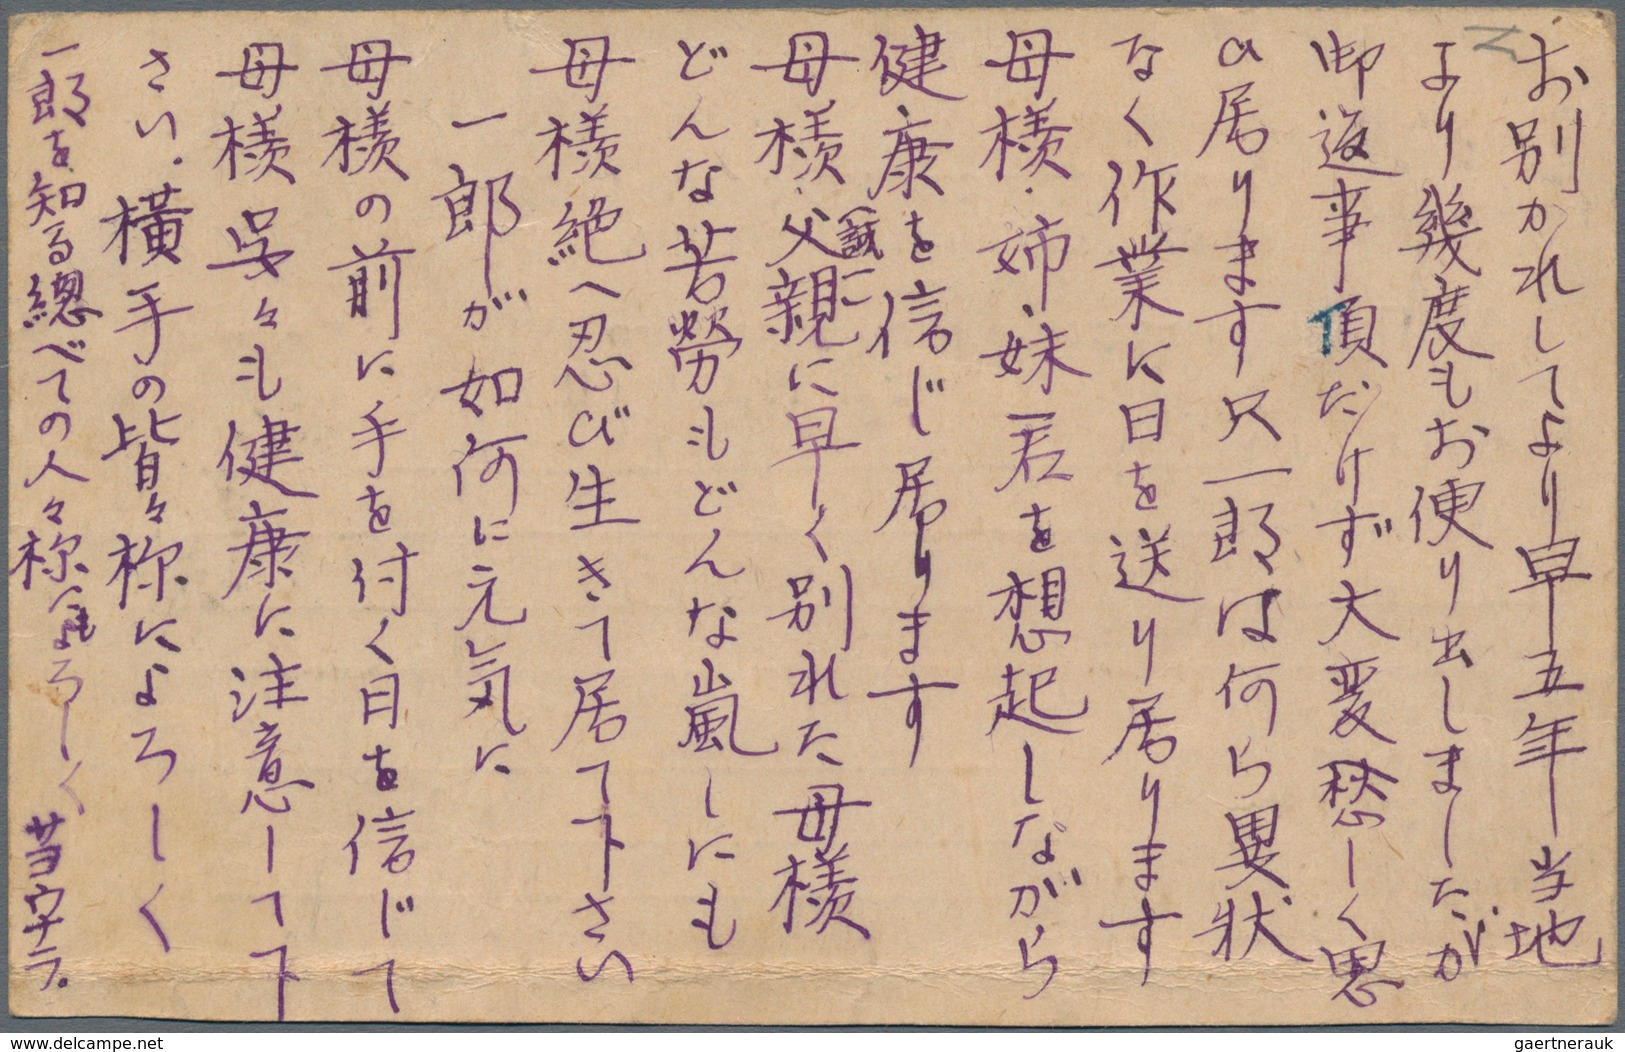 お別かれしてより早五年 当地
より幾度もお便り出しましたが
御返事頂だけず大変愁しく思
ひ居ります只一郎は何ら異状
なく作業に日を送り居ります
母様・姉・妹 君を想起しながら
健康を信じ居ります
母様・父親に早く別れた母様
どんな苦労もどんな嵐しにも
母様絶へ忍び生きて居て下さい
一郎が如何に元気に
母様の前に手を付く日を信じて
母様呉々も健康に注意して下
さい.横手の皆々様によろしく
一郎を知る總べての人々様へもよろしく
サヨウナラ。
www.delcampe.net
gaertnerauk